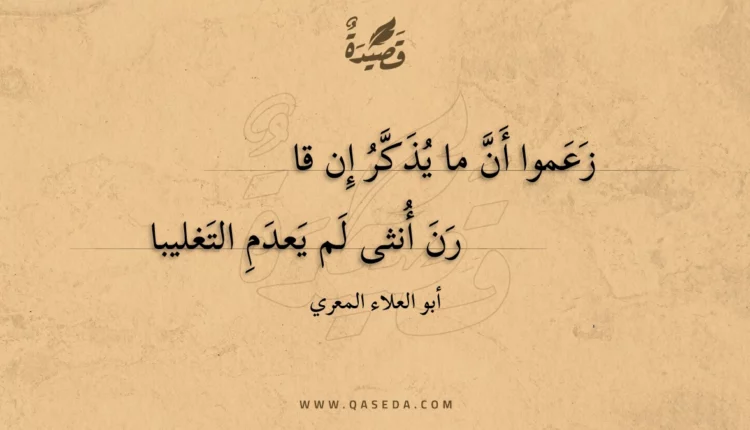 قَصِيْدَةٌ
زَعَموا أَنَّ ما يُذَكَّرُ إِن قا
رَنَ أُنثى لَم يَعدَمِ التَغليبا
أبو العلاء المعري
WWW.QASEDA.COM